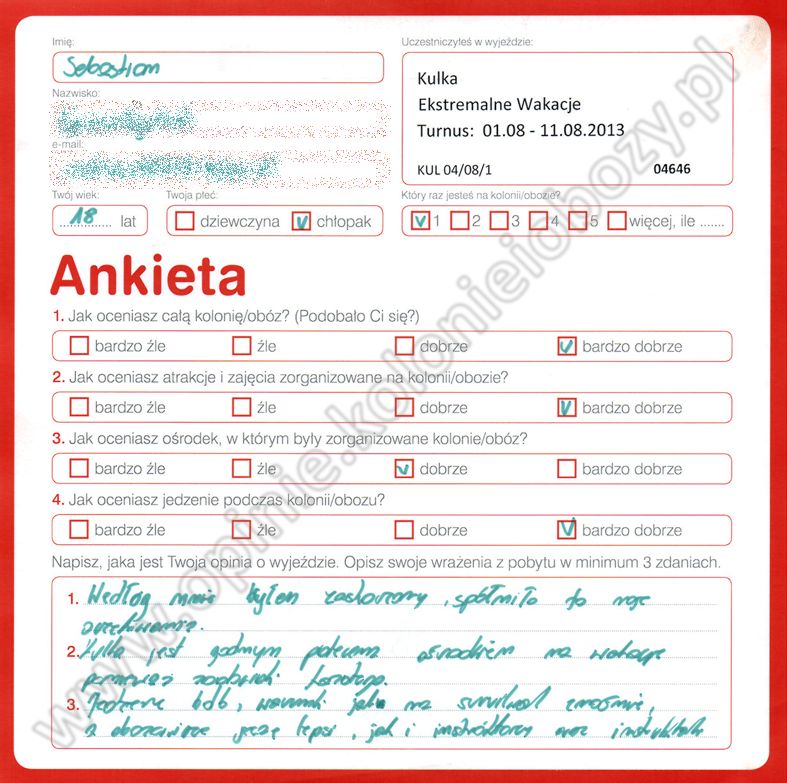 Imię:
Sebastian
Uczestniczyłeś w wyjeździe:
Kulka
Ekstremalne Wakacje
Turnus: 01.08 - 11.08.2013
KUL 04/08/1 04646
Nazwisko:
e-mail:
Twój wiek:
18 lat
Twoja płeć:
dziewczyna chłopak
Który raz jesteś na kolonii/obozie?
1 2 3 4 5 więcej, ile .......
Ankieta
1. Jak oceniasz całą kolonię/obóz? (Podobało Ci się?)
bardzo źle źle dobrze bardzo dobrze
2. Jak oceniasz atrakcje i zajęcia zorganizowane na kolonii/obozie?
bardzo źle źle dobrze bardzo dobrze
3. Jak oceniasz ośrodek, w którym były zorganizowane kolonie/obóz?
bardzo źle źle dobrze bardzo dobrze
4. Jak oceniasz jedzenie podczas kolonii/obozu?
bardzo źle źle dobrze bardzo dobrze
Napisz, jaka jest Twoja opinia o wyjeździe. Opisz swoje wrażenia z pobytu w minimum 3 zdaniach.
1. Według mnie byłem zaskoczony, spełniło to moje
oczekiwania.
2. Kulka jest godnym polecenia ośrodkiem na wakacje
ponieważ
3. Jedzenie bdb, warunki jak na survival znośnie,
a obozowicze jeszcze lepsi, jak i instruktorzy oraz instruktorki
www.opinie.kolonieiobozy.pl